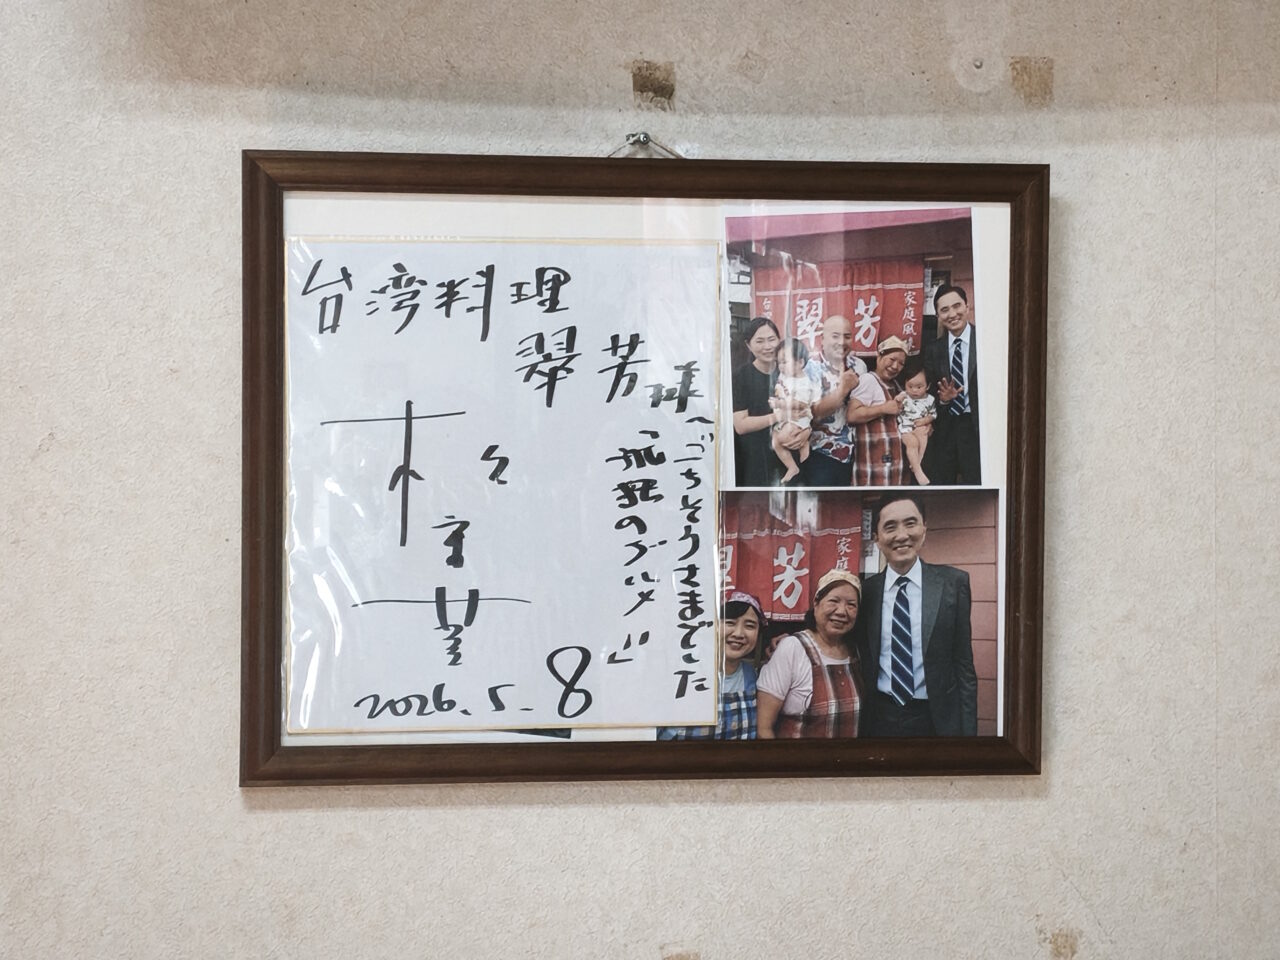 台湾料理
翠芳様へ
ごちそうさまでした
「孤独のグルメ」
2026.5.8
翠芳
家庭風
芳
家庭